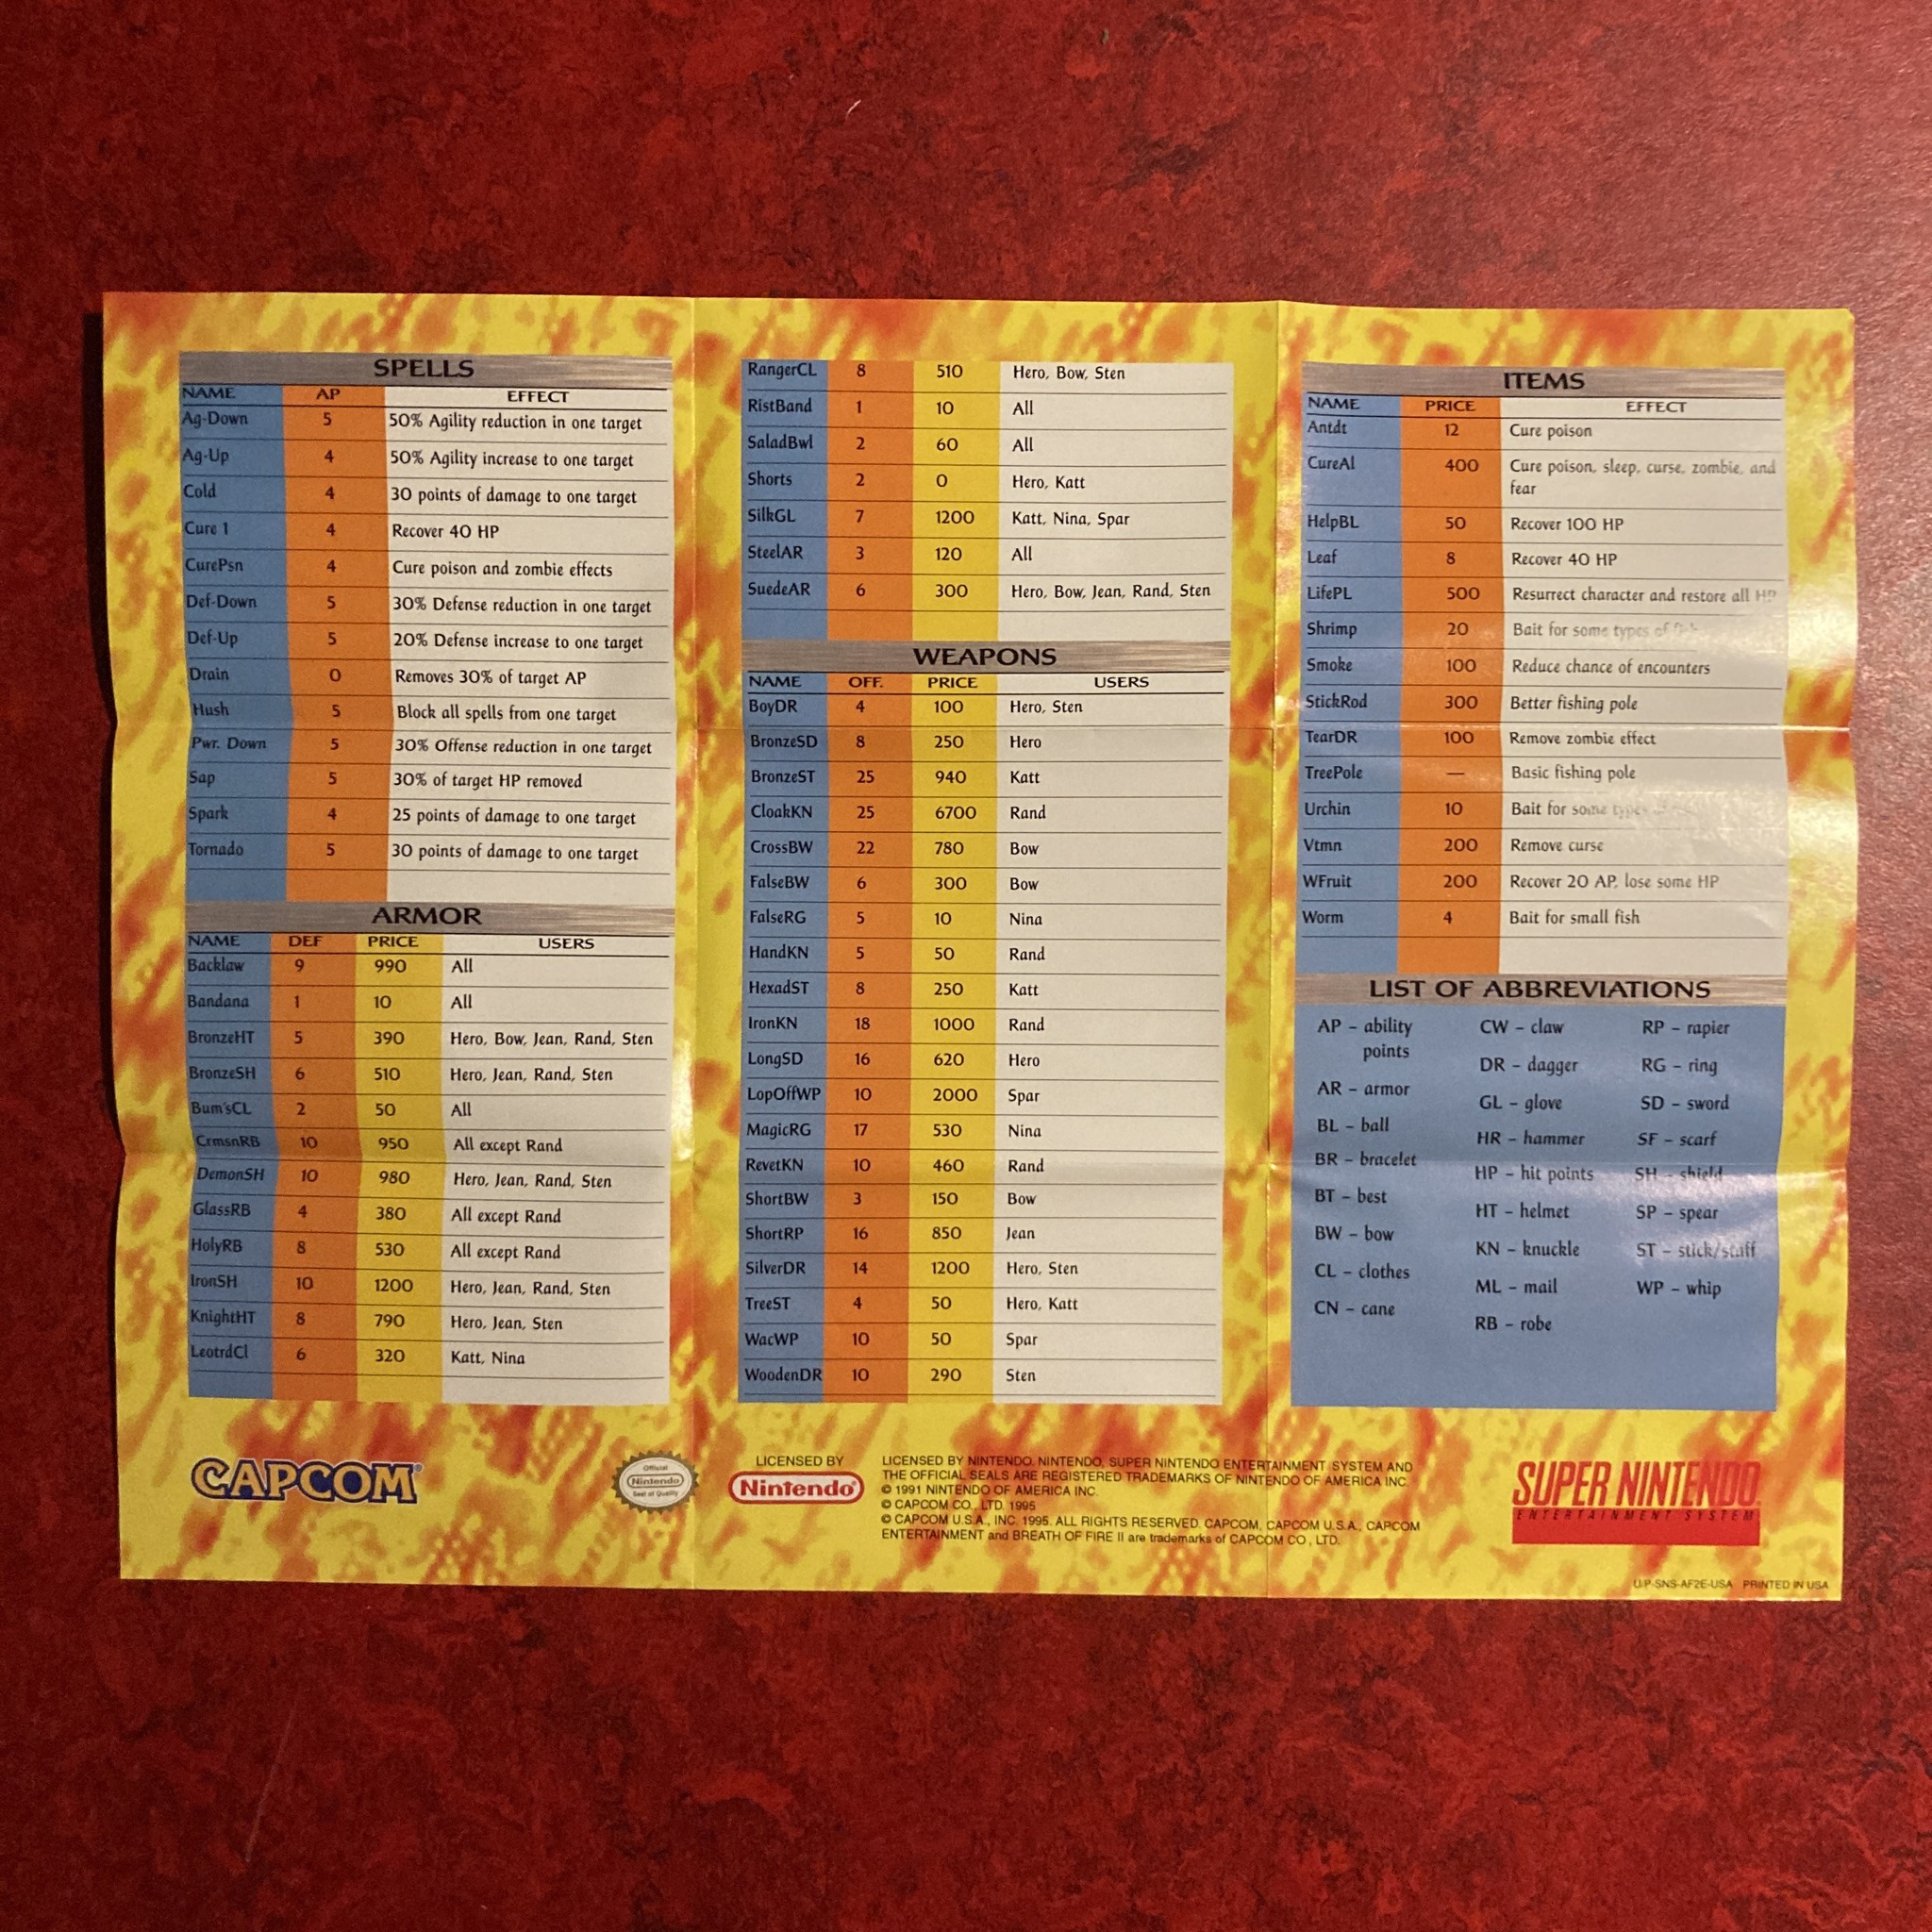 SPELLS
NAME AP EFFECT
Ag-Down 5 50% Agility reduction in one target
Ag-Up 4 50% Agility increase to one target
Cold 4 30 points of damage to one target
Cure 1 4 Recover 40 HP
CurePsn 4 Cure poison and zombie effects
Def-Down 5 30% Defense reduction in one target
Def-Up 5 20% Defense increase to one target
Drain 0 Removes 30% of target AP
Hush 5 Block all spells from one target
Pwr. Down 5 30% Offense reduction in one target
Sap 5 30% of target HP removed
Spark 4 25 points of damage to one target
Tornado 5 30 points of damage to one target
ARMOR
NAME DEF PRICE USERS
Backlaw 9 990 All
Bandana 1 10 All
BronzeHT 5 390 Hero, Bow, Jean, Rand, Sten
BronzeSH 6 510 Hero, Jean, Rand, Sten
Bum'sCL 2 50 All
CrmsnRB 10 950 All except Rand
DemonSH 10 980 Hero, Jean, Rand, Sten
GlassRB 4 380 All except Rand
HolyRB 8 530 All except Rand
IronSH 10 1200 Hero, Jean, Rand, Sten
KnightHT 8 790 Hero, Jean, Sten
LeotrdCl 6 320 Katt, Nina
RangerCL 8 510 Hero, Bow, Sten
RistBand 1 10 All
SaladBwl 2 60 All
Shorts 2 0 Hero, Katt
SilkGL 7 1200 Katt, Nina, Spar
SteelAR 3 120 All
SuedeAR 6 300 Hero, Bow, Jean, Rand, Sten
WEAPONS
NAME OFF. PRICE USERS
BoyDR 4 100 Hero, Sten
BronzeSD 8 250 Hero
BronzeST 25 940 Katt
CloakKN 25 6700 Rand
CrossBW 22 780 Bow
FalseBW 6 300 Bow
FalseRG 5 10 Nina
HandKN 5 50 Rand
HexadST 8 250 Katt
IronKN 18 1000 Rand
LongSD 16 620 Hero
LopOffWP 10 2000 Spar
MagicRG 17 530 Nina
RevetKN 10 460 Rand
ShortBW 3 150 Bow
ShortRP 16 850 Jean
SilverDR 14 1200 Hero, Sten
TreeST 4 50 Hero, Katt
WacWP 10 50 Spar
WoodenDR 10 290 Sten
ITEMS
NAME PRICE EFFECT
Antdt 12 Cure poison
CureAl 400 Cure poison, sleep, curse, zombie, and
fear
HelpBL 50 Recover 100 HP
Leaf 8 Recover 40 HP
LifePL 500 Resurrect character and restore all HP
Shrimp 20 Bait for some types of fish
Smoke 100 Reduce chance of encounters
StickRod 300 Better fishing pole
TearDR 100 Remove zombie effect
TreePole — Basic fishing pole
Urchin 10 Bait for some types
Vtmn 200 Remove curse
WFruit 200 Recover 20 AP, lose some HP
Worm 4 Bait for small fish
LIST OF ABBREVIATIONS
AP – ability
points
AR – armor
BL – ball
BR – bracelet
BT – best
BW – bow
CL – clothes
CN – cane
CW – claw
DR – dagger
GL – glove
HR – hammer
HP – hit points
HT – helmet
KN – knuckle
ML – mail
RB – robe
RP – rapier
RG – ring
SD – sword
SF – scarf
SH – shield
SP – spear
ST – stick/staff
WP – whip
CAPCOM®
Official
Nintendo
Seal of Quality
LICENSED BY
Nintendo®
LICENSED BY NINTENDO. NINTENDO, SUPER NINTENDO ENTERTAINMENT SYSTEM AND
THE OFFICIAL SEALS ARE REGISTERED TRADEMARKS OF NINTENDO OF AMERICA INC.
© 1991 NINTENDO OF AMERICA INC.
© CAPCOM CO., LTD. 1995
© CAPCOM U.S.A., INC. 1995. ALL RIGHTS RESERVED. CAPCOM, CAPCOM U.S.A., CAPCOM
ENTERTAINMENT and BREATH OF FIRE II are trademarks of CAPCOM CO., LTD.
SUPER NINTENDO
ENTERTAINMENT SYSTEM
U/P-SNS-AF2E-USA PRINTED IN USA